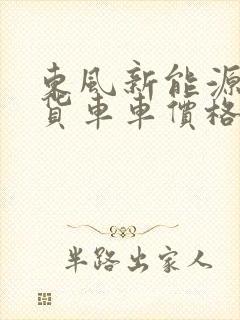 東風新能源
貨車車價格
半路出家人